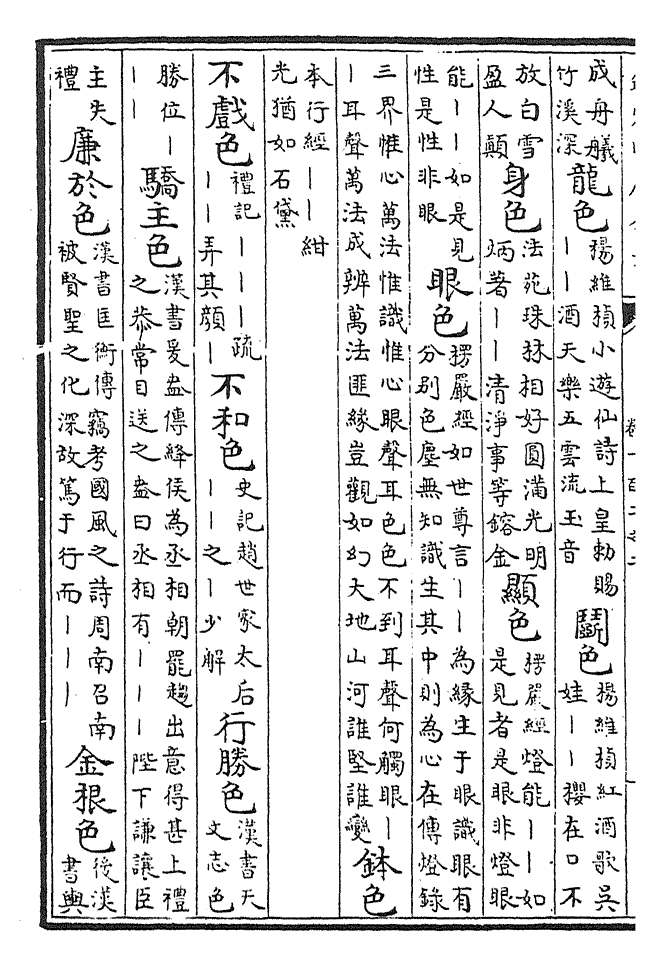 成舟艤
竹溪深
龍色
楊維楨小遊仙詩上皇勅賜
｜｜酒天樂五雲流玉音
鬭色
楊維楨紅酒歌吳
娃｜｜櫻在口不
放白雪
盈人顛
身色
法苑珠林相好圓滿光明
炳著｜｜清淨事等鎔金
顯色
楞嚴經燈能｜｜如
是見者是眼非燈眼
能｜｜如是見
性是性非眼
眼色
楞嚴經如世尊言｜｜為緣生于眼識眼有
分別色塵無知識生其中則為心在傳燈錄
三界惟心萬法惟識惟心眼聲耳色色不到耳聲何觸眼｜
｜耳聲萬法成辨萬法匪緣豈觀如幻大地山河誰堅誰變
鉢色
本行經｜｜紺
光猶如石黛
不戲色
禮記｜｜｜疏
｜｜弄其顏｜
不和色
史記趙世家太后
｜｜之｜少解
行勝色
漢書天
文志色
勝位｜
｜｜
驕主色
漢書爰盎傳絳侯為丞相朝罷趨出意得甚上禮
之恭常目送之盎曰丞相有｜｜｜陛下謙讓臣
主失
禮
廉於色
漢書匡衡傳竊考國風之詩周南召南
被賢聖之化深故篤于行而｜｜｜
金根色
後漢
書輿